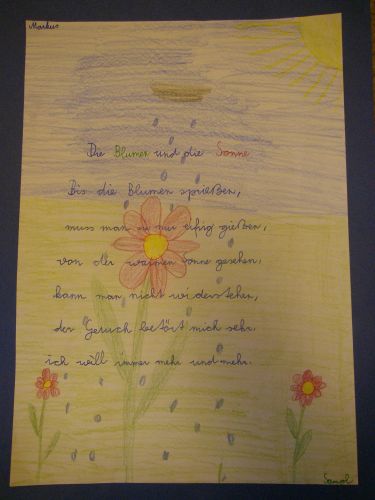 Markus
Die Blumen und die Sonne
Bis die Blumen sprießen,
muss man sie nur eifrig gießen,
von der warmen Sonne gesehen,
kann man nicht widerstehen,
der Geruch betört mich sehr,
ich will immer mehr und mehr.